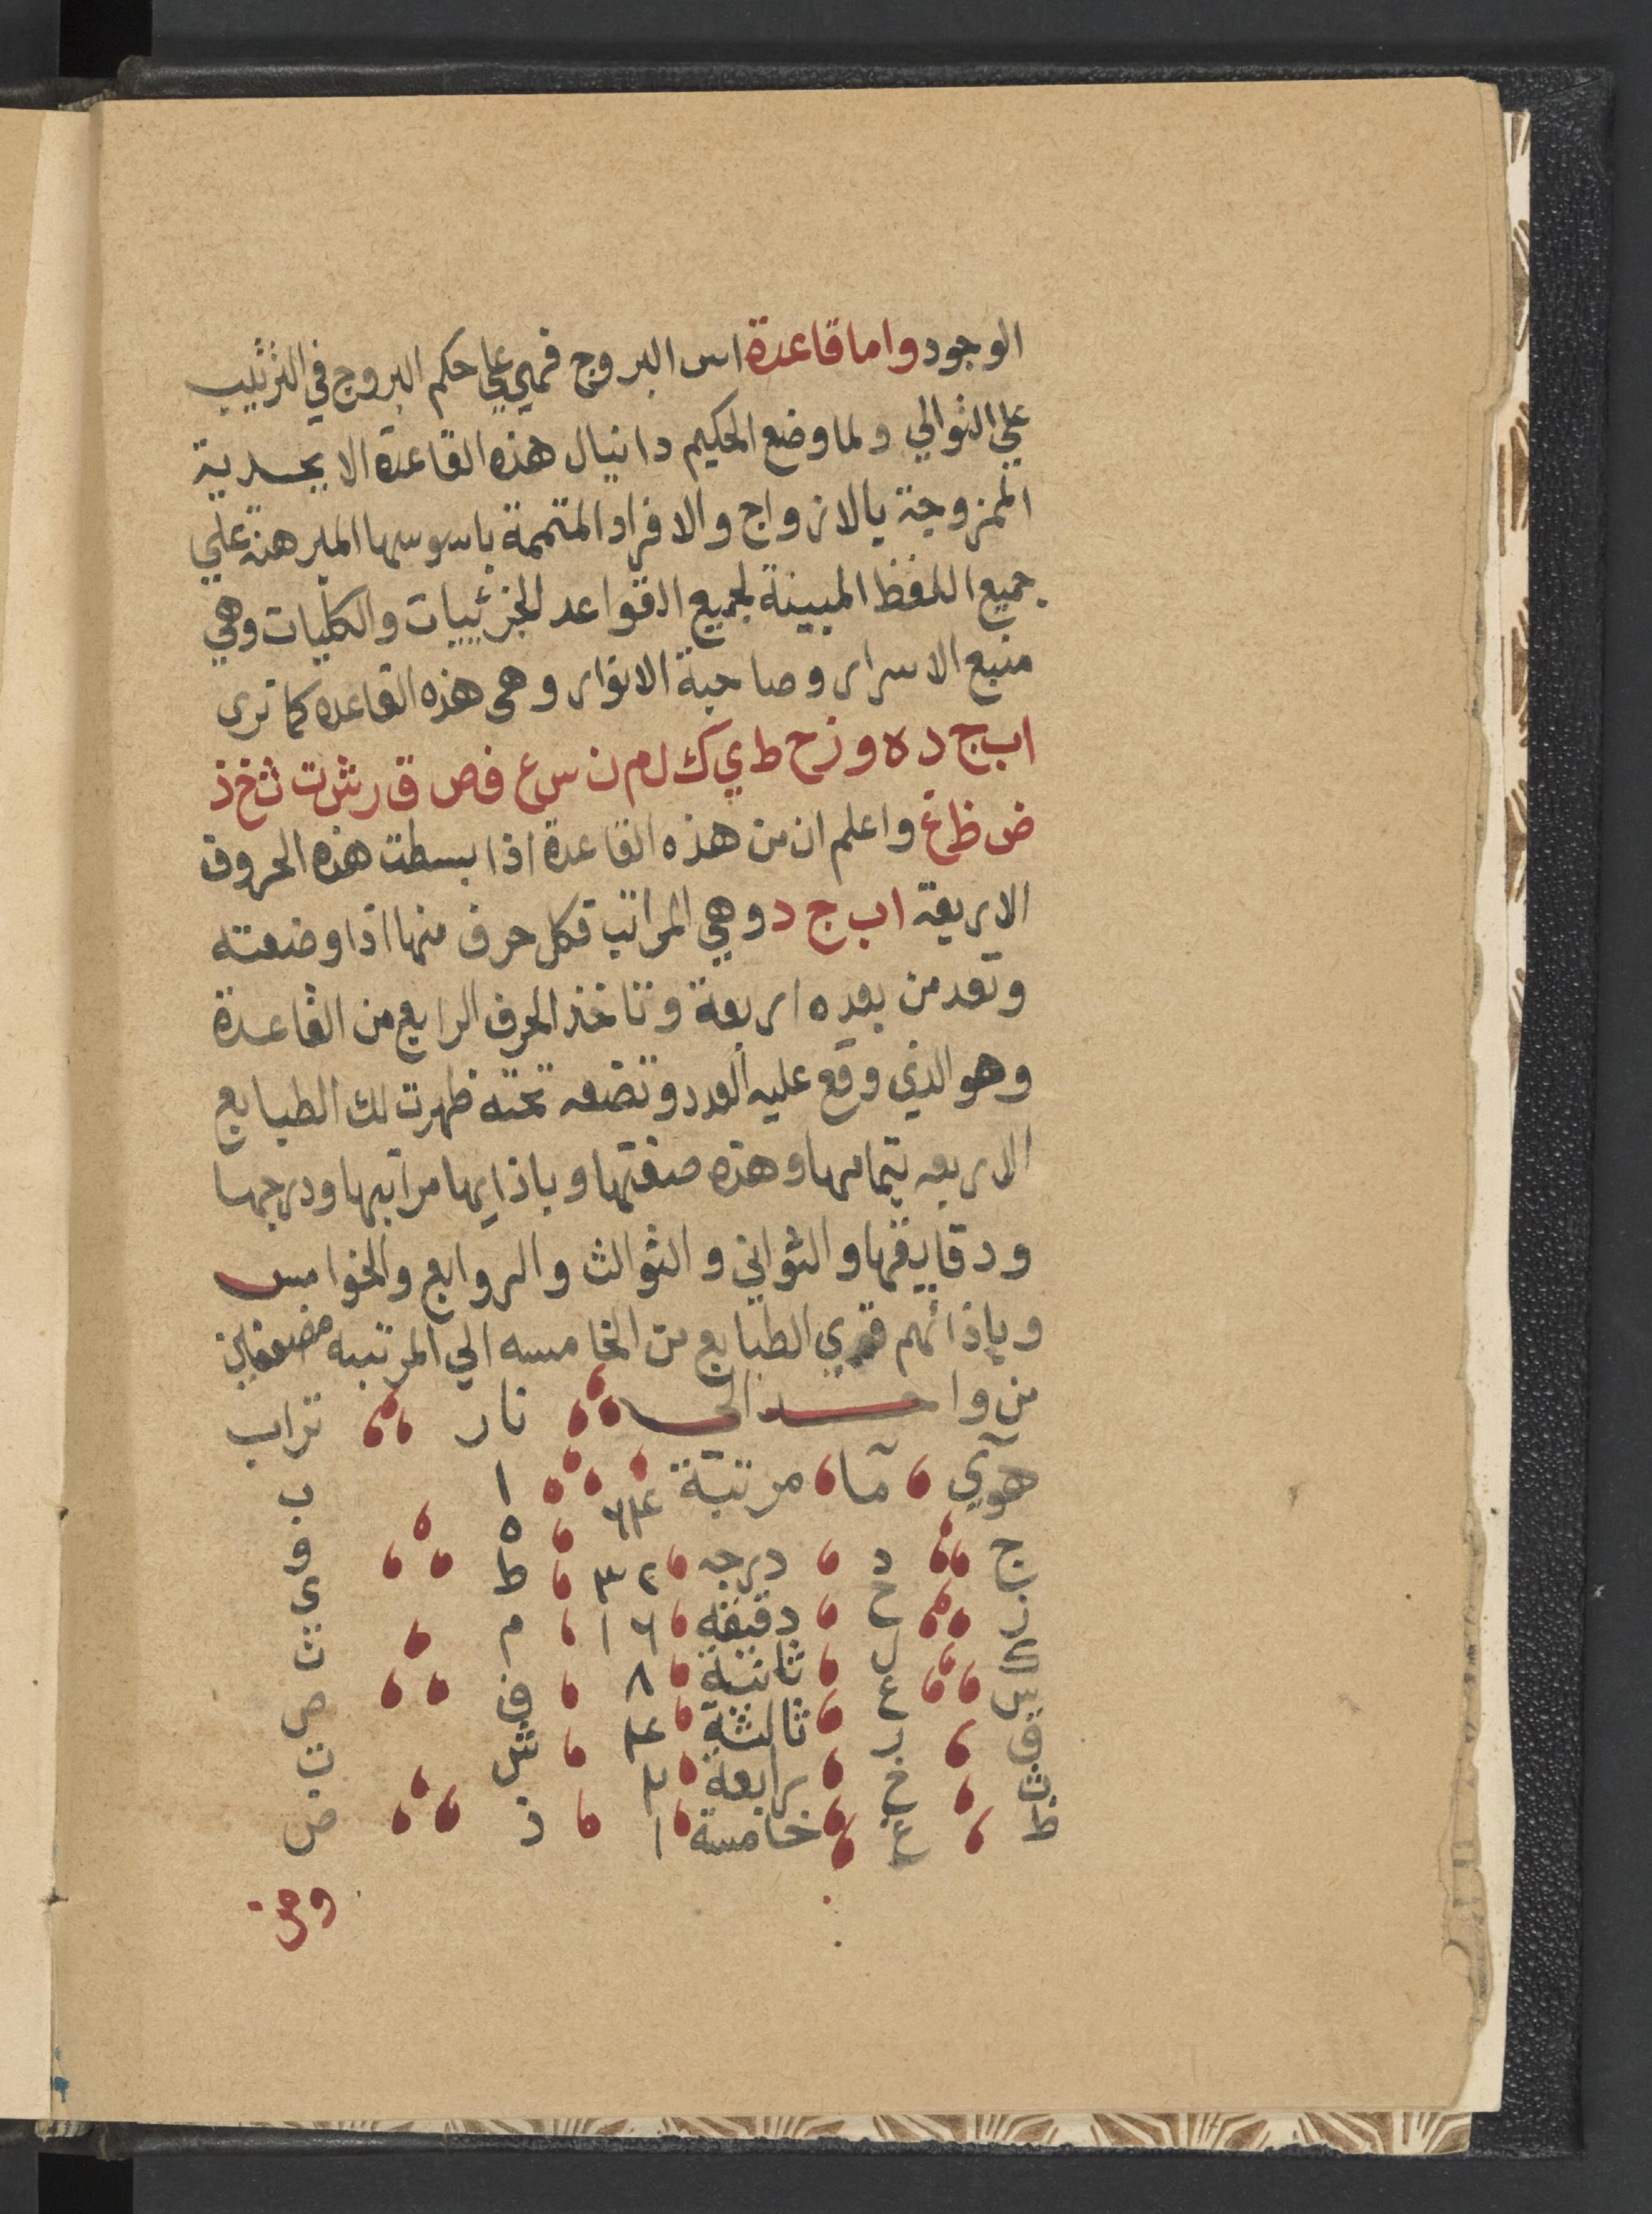 الوجود واما قاعدة اس البروج فهي علي حكم البروج في الترتيب
علي التوالي ولما وضع الحكيم دانيال هذه القاعدة الابجدية
الممزوجة بالازواج والافراد المتممة باسوسها المبرهنة علي
جميع اللفظ المبينة لجميع القواعد الجزئييات والكليات وهي
منبع الاسرار وصاحبة الانوار وهى هذه القاعده كما ترى
ا ب ج د ه و ز ح ط ي ك ل م ن س ع ف ص ق ر ش ت ث خ ذ
ض ظ غ واعلم ان من هذه القاعدة اذا بسطت هذه الحروف
الاربعة ا ب ج د وهي المراتب فكل حرف منها اذا وضعته
وتعد من بعده اربعة وتاخذ الحرف الرابع من القاعدة
وهو الذي وقع عليه العدد وتضعه تحته ظهرت لك الطبايع
الاربعه بتمامها وهذه صفتها وباذايها مراتبها ودرجها
ودقايقها والثواني والثوالث والروابع والخوامس
وباذائهم قوي الطبايع من الخامسه الي المرتبه مضعفاين
من واحد الى نار تراب
هوآي مآ مرتبة ٦٤ ا ب
ج د درجه ٣٢ ه و
ز ح دقيقه ١٦ ط ي
ك ل ثانية ٨ م ن
س ع ثالثة ٤ ف ص
ق ر رابعة ٢ ش ت
ث خ خامسة ١ ذ ض
ظ غ